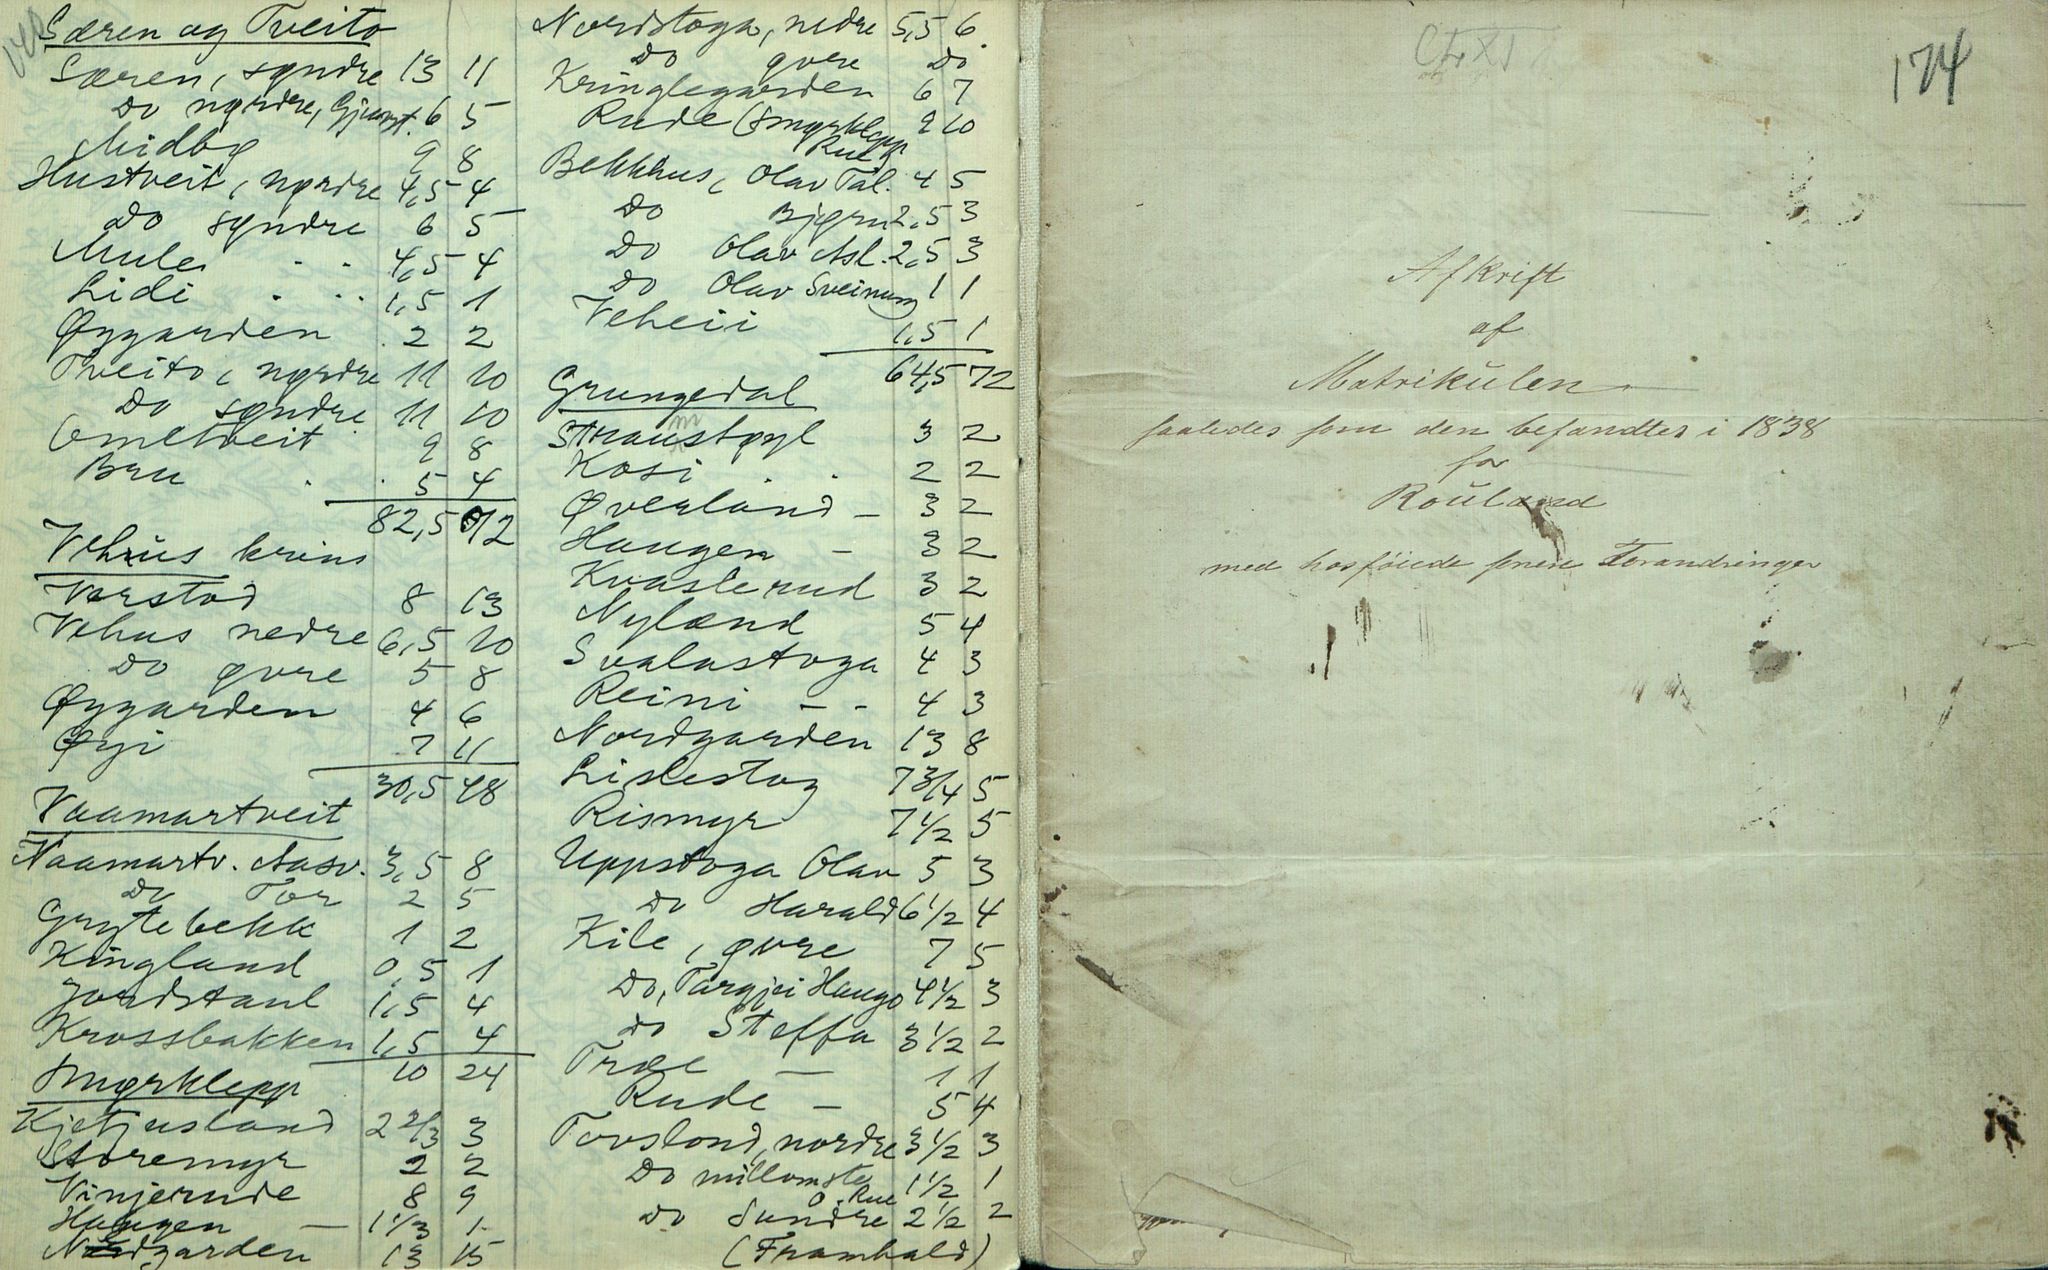 Særen og Tveito
Særen, søndre 13 11
Do nørdre, Gjuvst. 6 5
Midbø 9 8
Hustveit, nørdre 4,5 4
Do søndre 6 5
Mule . . 4,5 4
Lidi . . . 1,5 1
Øygarden . 2 2
Tveito, nørdre 11 10
Do søndre 11 10
Omltveit 9 8
Bru . . 5 4
82,5 72
Vehus krins
Vårstad 8 13
Vehus nedre 6,5 10
Do øvre 5 8
Øygarden 4 6
Øyi 7 11
30,5 48
Vaamartveit
Vaamartv. Aasv. 3,5 8
Do Tor 2 5
Grytebekk 1 2
Kingland 0,5 1
Jordstaul 1,5 4
Krossbakken 1,5 4
10 24
Smørklepp
Kjetjusland 2 2/3 3
Storemyr 2 2
Vinjerude 8 9
Haugen — 1 1/3 1
Nordgarden 13 15
Nordstoga, nedre 5,5 6.
Do øvre Do
Kringlegarden 6 7
Rude (Smørklepp 9 10
Rue)
Bekkhus, Olav Tal. 4 5
Do Bjørn 2,5 3
Do Olav Asl. 2,5 3
Do Olav Sveinung 1 1
Veheii 1,5 1
64,5 72
Grungedal
m
Straustøyl 3 2
Kosi . . 2 2
Øverland — 3 2
Haugen — 3 2
Kvaslerud 3 2
Nylænd 5 4
Svalastoga 4 3
Reini — - 4 3
Nordgarden 13 8
Lislestog 7 3/4 5
Rismyr 7 1/2 5
Uppstoga Olav 5 3
Do Harald 6 1/2 4
Kile, øvre 7 5
Do, Targjei Haugo 4 1/2 3
Do Steffa 3 1/2 2
Træe — 1 1
Rude — 5 4
Tovslond, nordre 3 1/2 3
Do millomste 1 1/2 1
O. Rue
Do Sundre 2 1/2 2
(Framhald)
CLXI
174
Afskrift
af
Matrikulen
saaledes som den befandtes i 1838
for
Rouland
med hosføiede senere Forandringer